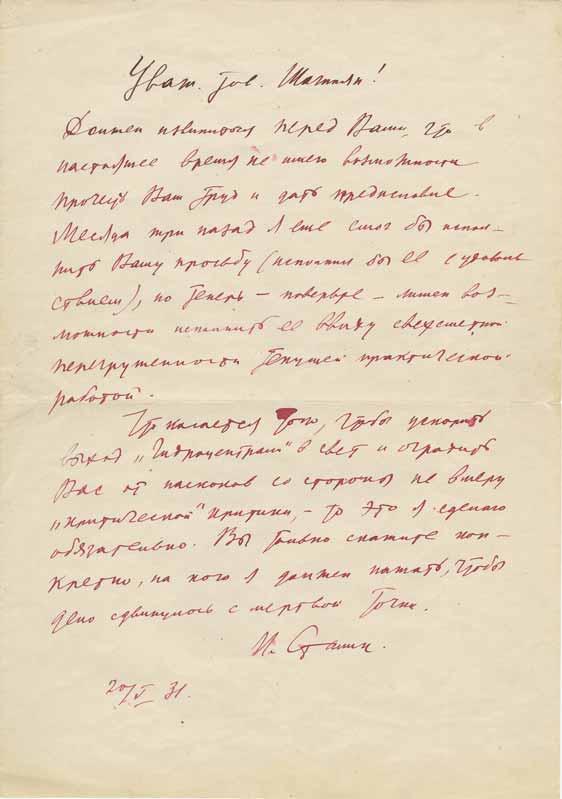 Уваж. тов. Шагинян!
Должен извиниться перед Вами, что в
настоящее время не имею возможности
прочесть Ваш труд и дать предисловие.
Месяца три назад я еще смог бы испол-
нить Вашу просьбу (исполнил бы ее с удоволь
ствием), но теперь – поверьте – лишен воз-
можности исполнить ее ввиду сверхсметной
перегруженности текущей практической
работой.
Что касается того, чтобы ускорить
выход „Гидроцентрали" в свет и оградить
Вас от наскоков со стороны не в меру
„критической" критики, – то это я сделаю
обязательно. Вы только скажите кон-
кретно, на кого я должен нажать, чтобы
дело сдвинулось с мертвой точки.
И. Сталин.
20/V 31.